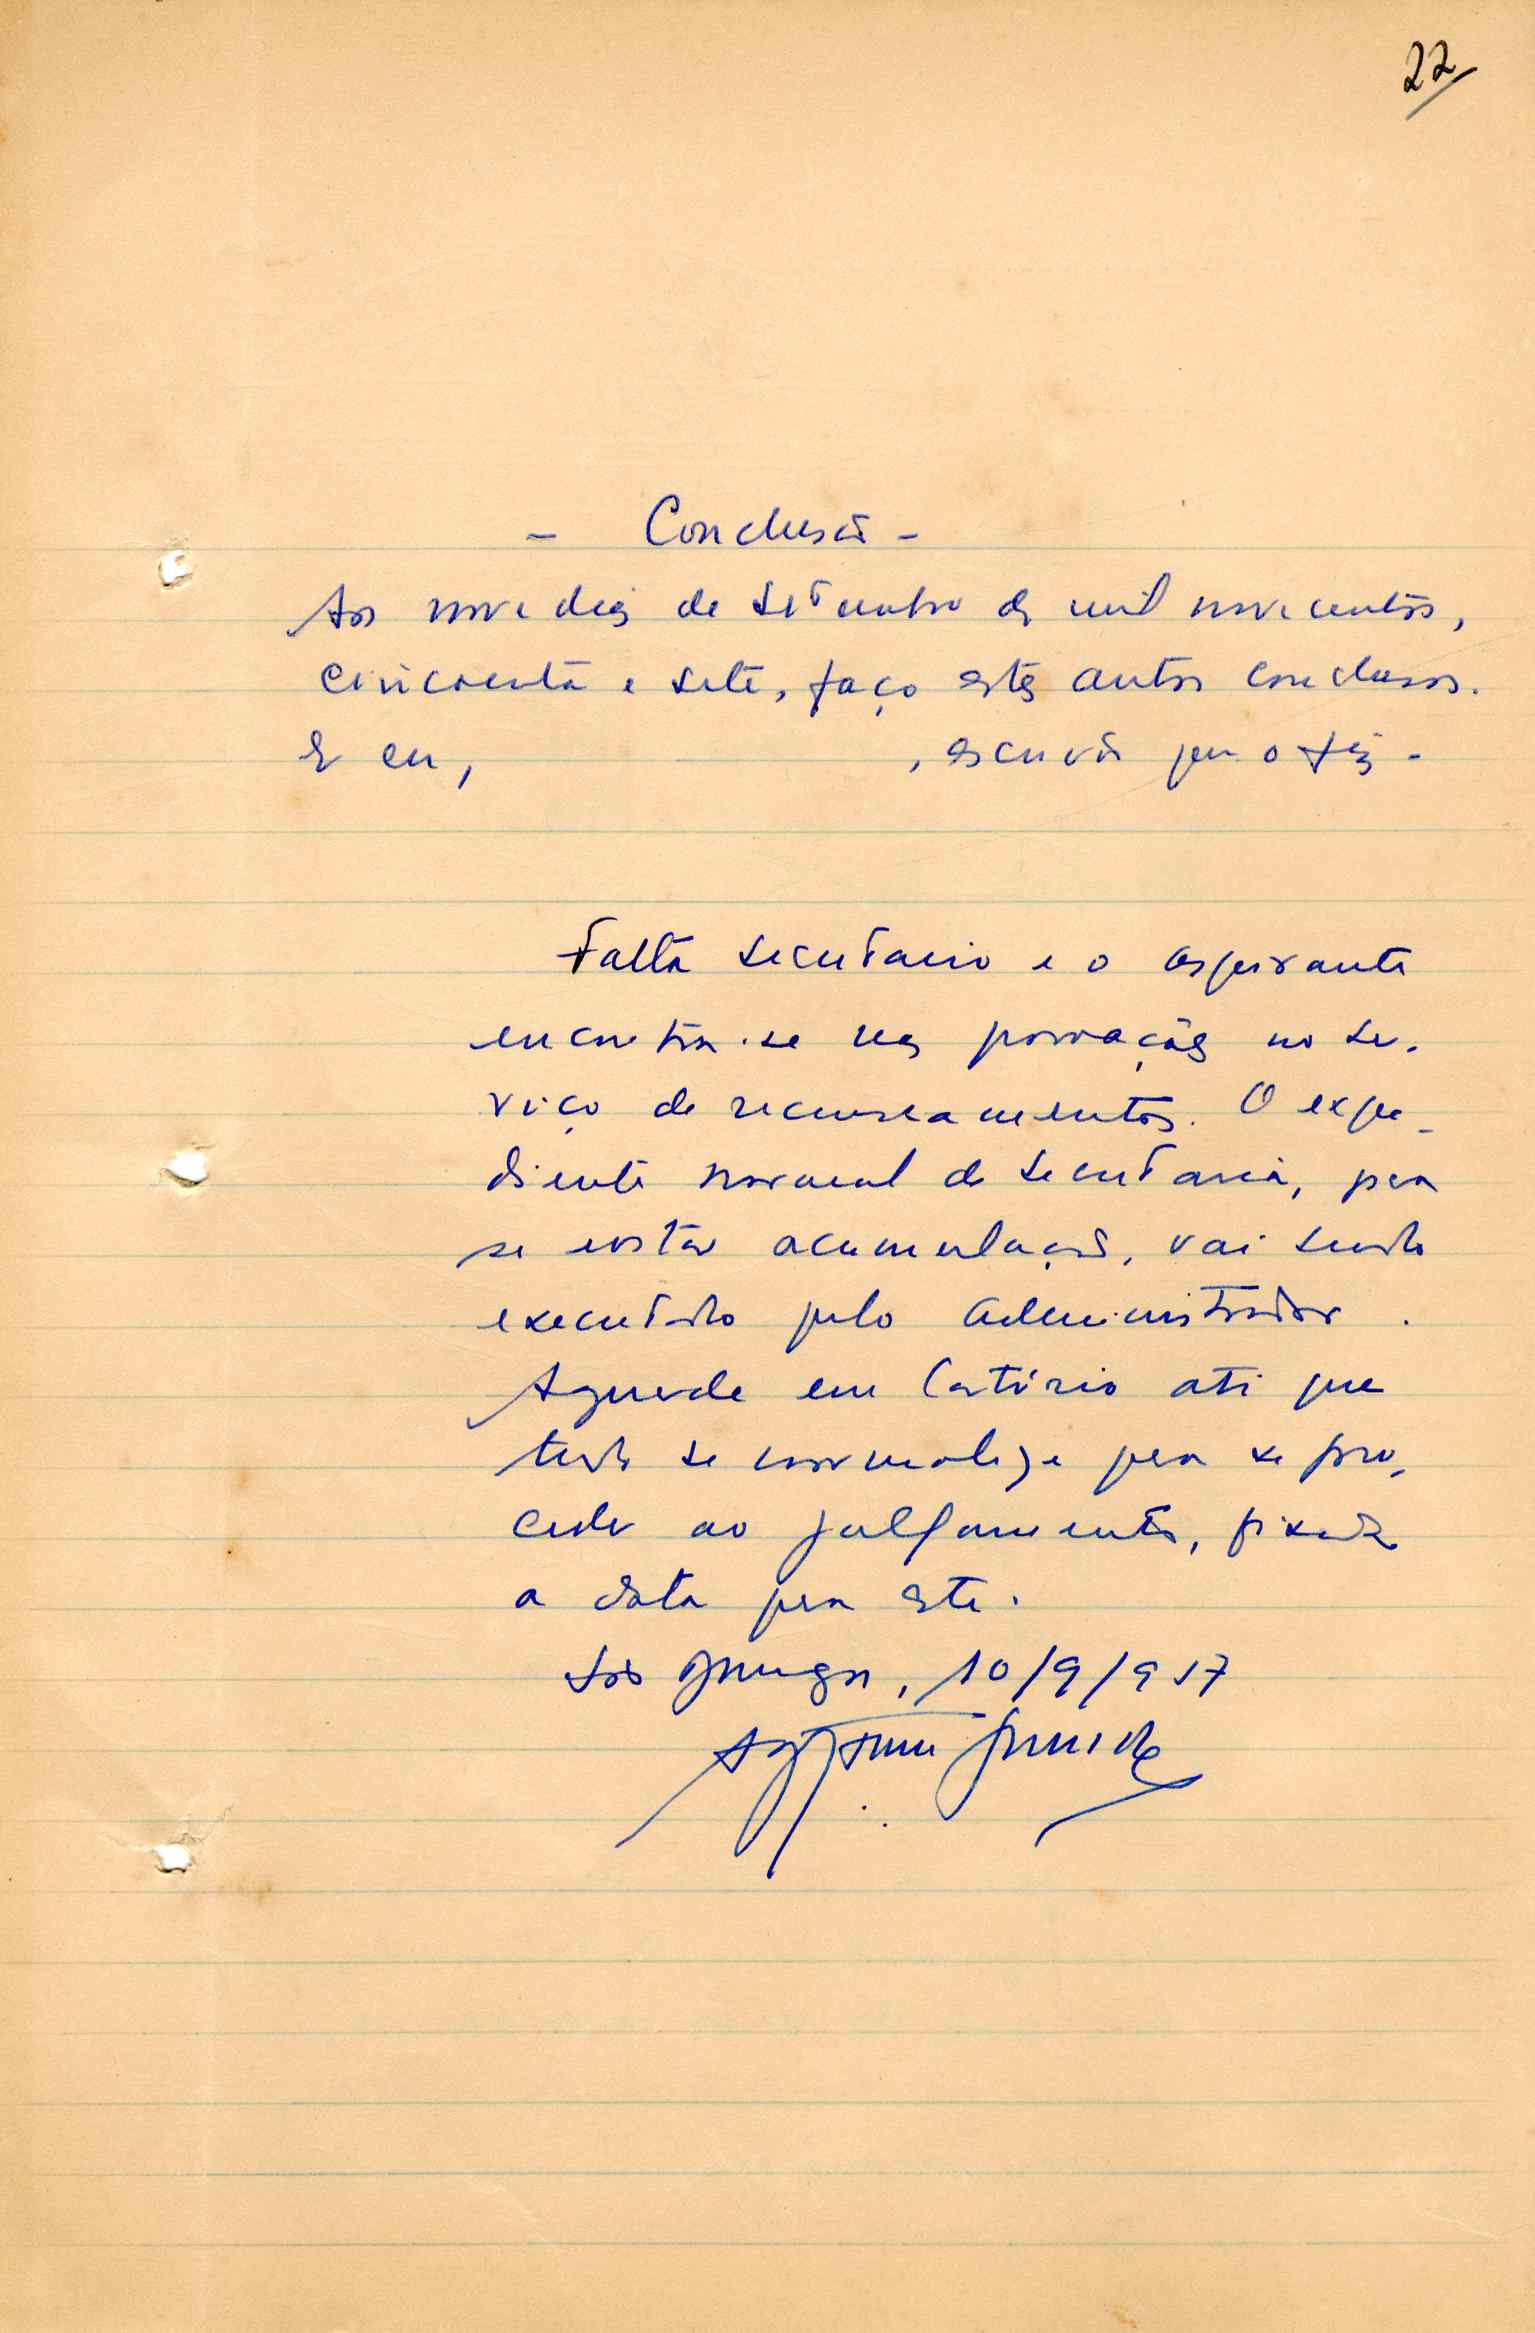 22
- Conclusão -
Aos nove dias de Setembro de mil novecentos,
cincoenta e sete, faço estes autos conclusos.
E eu, , escrivão que o fiz -
Falta secretario e o aspirante
encontra-se nas povoações no ser-
viço de recenseamentos. O expe-
diente normal de secretaria, para
se evitar acumulação, vai sendo
executado pelo Administrador.
Aguarde em Cartório até que
tudo se normalize para se pro-
ceder ao julgamento, fixada
a data para este.
10/9/957